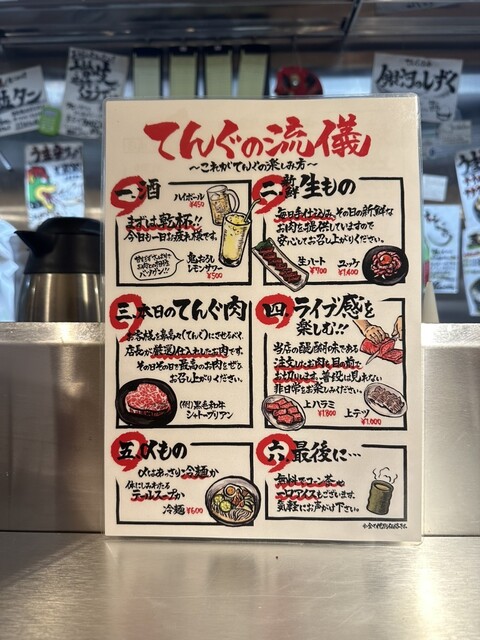 てんぐの流儀
～これがてんぐの楽しみ方～
一.酒
ハイボール
¥450
まずは乾杯!!
今日も一日お疲れ様です。
鬼おろし
レモンサワー
¥500
二.新鮮生もの
毎日手仕込み、その日の新鮮な
お肉を提供していますので
安心してお召し上がりください。
生ハート
¥900
ユッケ
¥1,600
三.本日のてんぐ肉
お客様を最高々(てんぐ)にさせるべく、
店長が厳選仕入れしたお肉です。
その日その日で最高のお肉をぜひ
お召し上がりください。
(例)黒毛和牛
シャトーブリアン
四.ライブ感を
楽しむ!!
当店の醍醐味である
注文したお肉を目の前で
お切りします。普段は見れない
非日常をお楽しみください。
上ハラミ
¥1,800
上テツ
¥1,000
五.〆もの
〆はあっさり冷麺か
体にしみわたる
テールスープか
冷麺 ¥600
六.最後に…
無料でコーン茶や
コロアイスもございます。
気軽にお声がけ下さい。
※全て税別価格です。
生タン